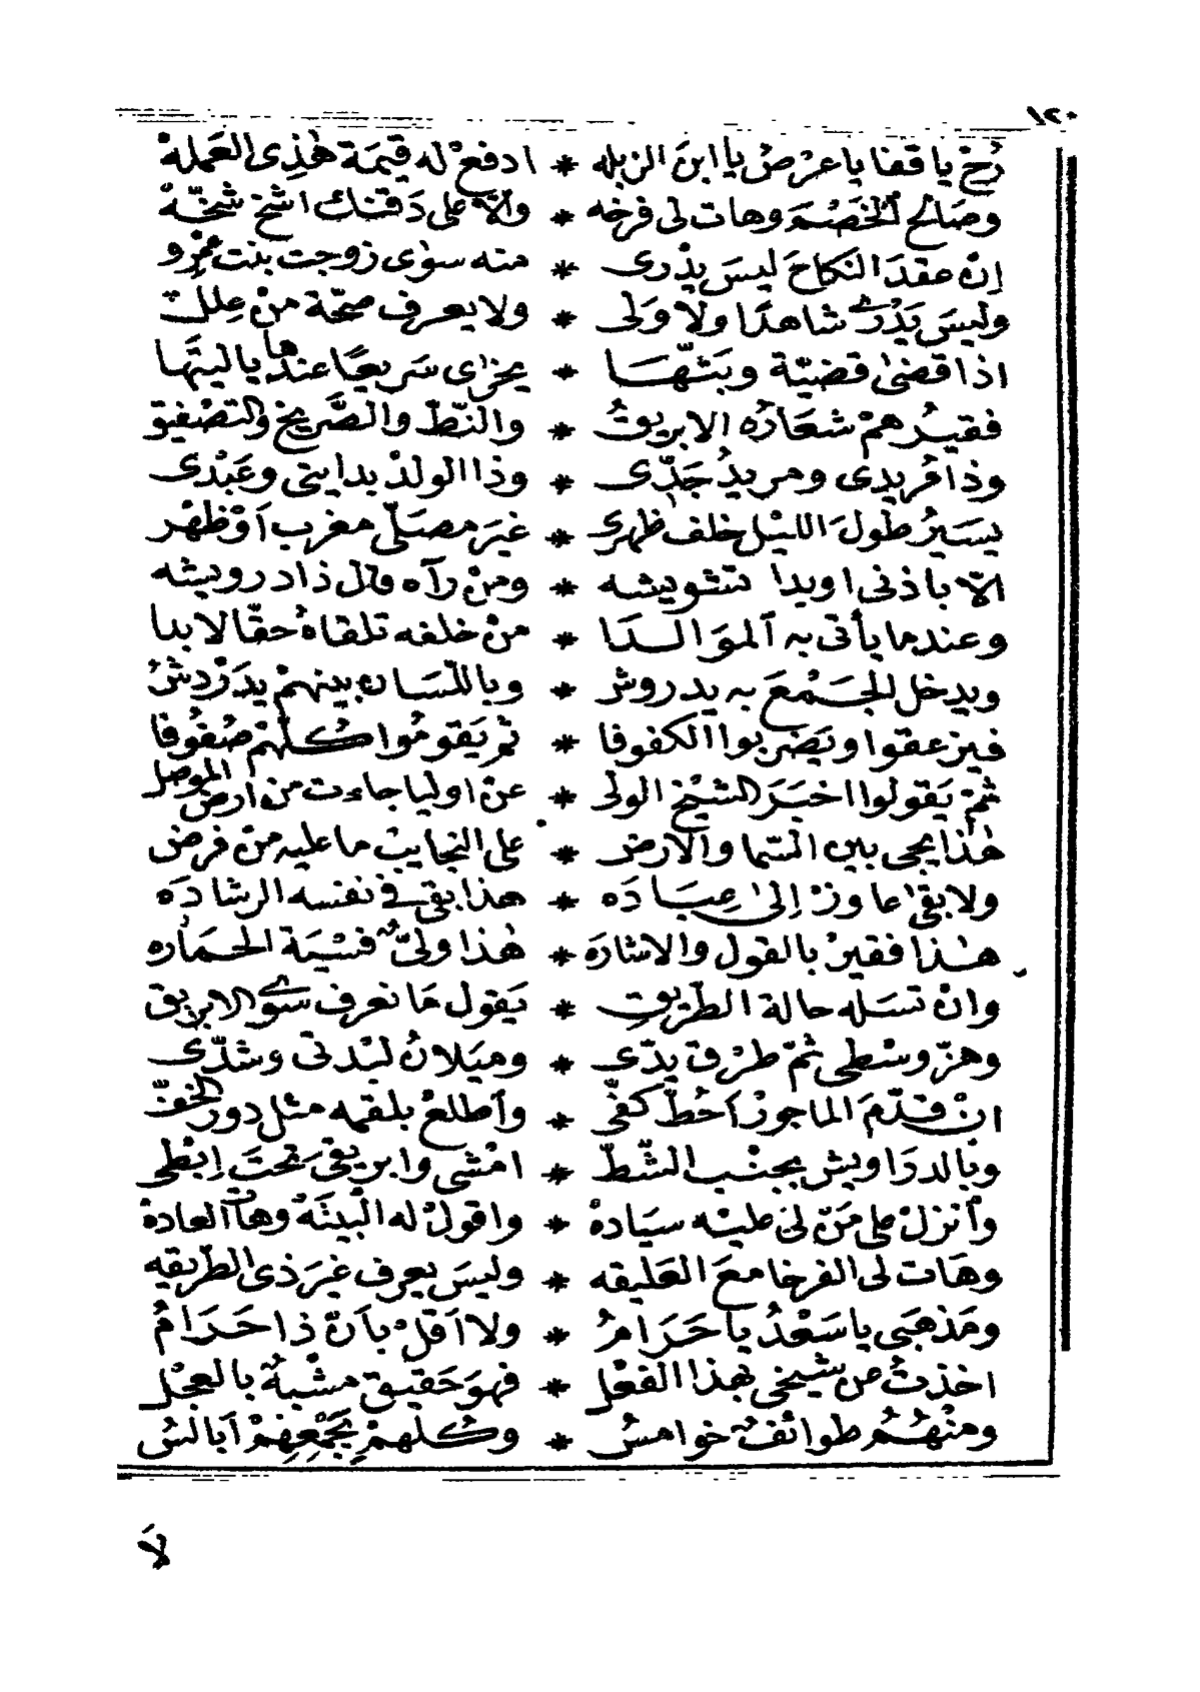 ١٢٠
رُخْ يا قفا يا عرْصُ يا ابنَ الزبله * ادفعْ له قيمَة هٰذِى العَملهْ
وصَالح الخَصْمَ وهات لى فرخه * والّا على دَقنك اشخ شخّهْ
اِنّ عقدَ النكاحَ ليسَ يدْرى * منه سوٰى زوجت بنت عمْرِو
وليسَ يَدْرى شاهدًا ولا وَلى * ولا يعرف صحّة منْ عِلل
اذا قضىٰ قضيّة وبَتّهَا * يخرٰى سَريعًا عندها ياليتَها
فقيرُهمْ شعَارُه الابريقُ * والنّطّ والصَّريخ والتصْفيق
وذا مُريدى ومريدُ جَدّى * وذا الولدْ بدايتى وعَبْدى
يسَيرُ طولَ الليْل خلف ظهرى * غيَر مصَلّى مغرب اَوْ ظهْر
الّا باذنى اويدا تتشويشه * ومنْ رآه قال ذا درويشه
وعندما يأتى به الموَالدَا * منْ خلفه تلقاهُ حقّا لابدا
ويدخل الجَمْعَ به يدروش * وباللّسَان بينهمْ يدَرْدشُ
فيزعقوا ويَضربوا الكفوفا * ثم يَقومُوا كُلّهمْ صُفُوفا
ثمّ يَقولوا اخبَرَ الشيْخ الولى * عنْ اوليا جاءت من ارض الموصل
هٰذا يجى بين السّما والارض * على النجايب ما عليه منْ فرض
ولا بقىٰ عاوزْ اِلىٰ عِبَادَه * هذا بقى فى نفسه الرشادَه
هٰذا فقيرْ بالقول والاشارَه * هٰذا ولىّ فسْيَة الحمَاره
وانْ تسَله حالة الطّريقِ * يَقول مَا نعرف سَوى الابريق
وهزّ وسْطى ثمّ طرْق يدّى * وميَلانُ لبْدتى وشدّى
انْ قدّمَ الماجورْ اَحُطّ كفّى * وأطلعْ بلقمه مثل دور الخفّ
وبالدرَاويش بجنْب الشّطّ * امْشى وابريقى تحتَ اِبْطى
وأنزلْ على مَنْ لى عليْه سيَادهْ * واقولْ له البيتَهْ وهاتْ العادهْ
وهَات لى الفرخا معَ العَليقه * وليسَ يعرف غيَر ذى الطّريقه
ومَذهبَى ياسَعْدُ يا حَرَامُ * ولا اَقلْ بأنّ ذا حَرَامُ
اخذتُ من شيْخى بهٰذا الفعْل * فهوَ حَقيق مشْبهٌ بالعجْل
ومنْهُمُ طوائفٌ خوامسُ * وكُلهمْ يَجْمَعِهمْ اَبَالسُ
لاَ